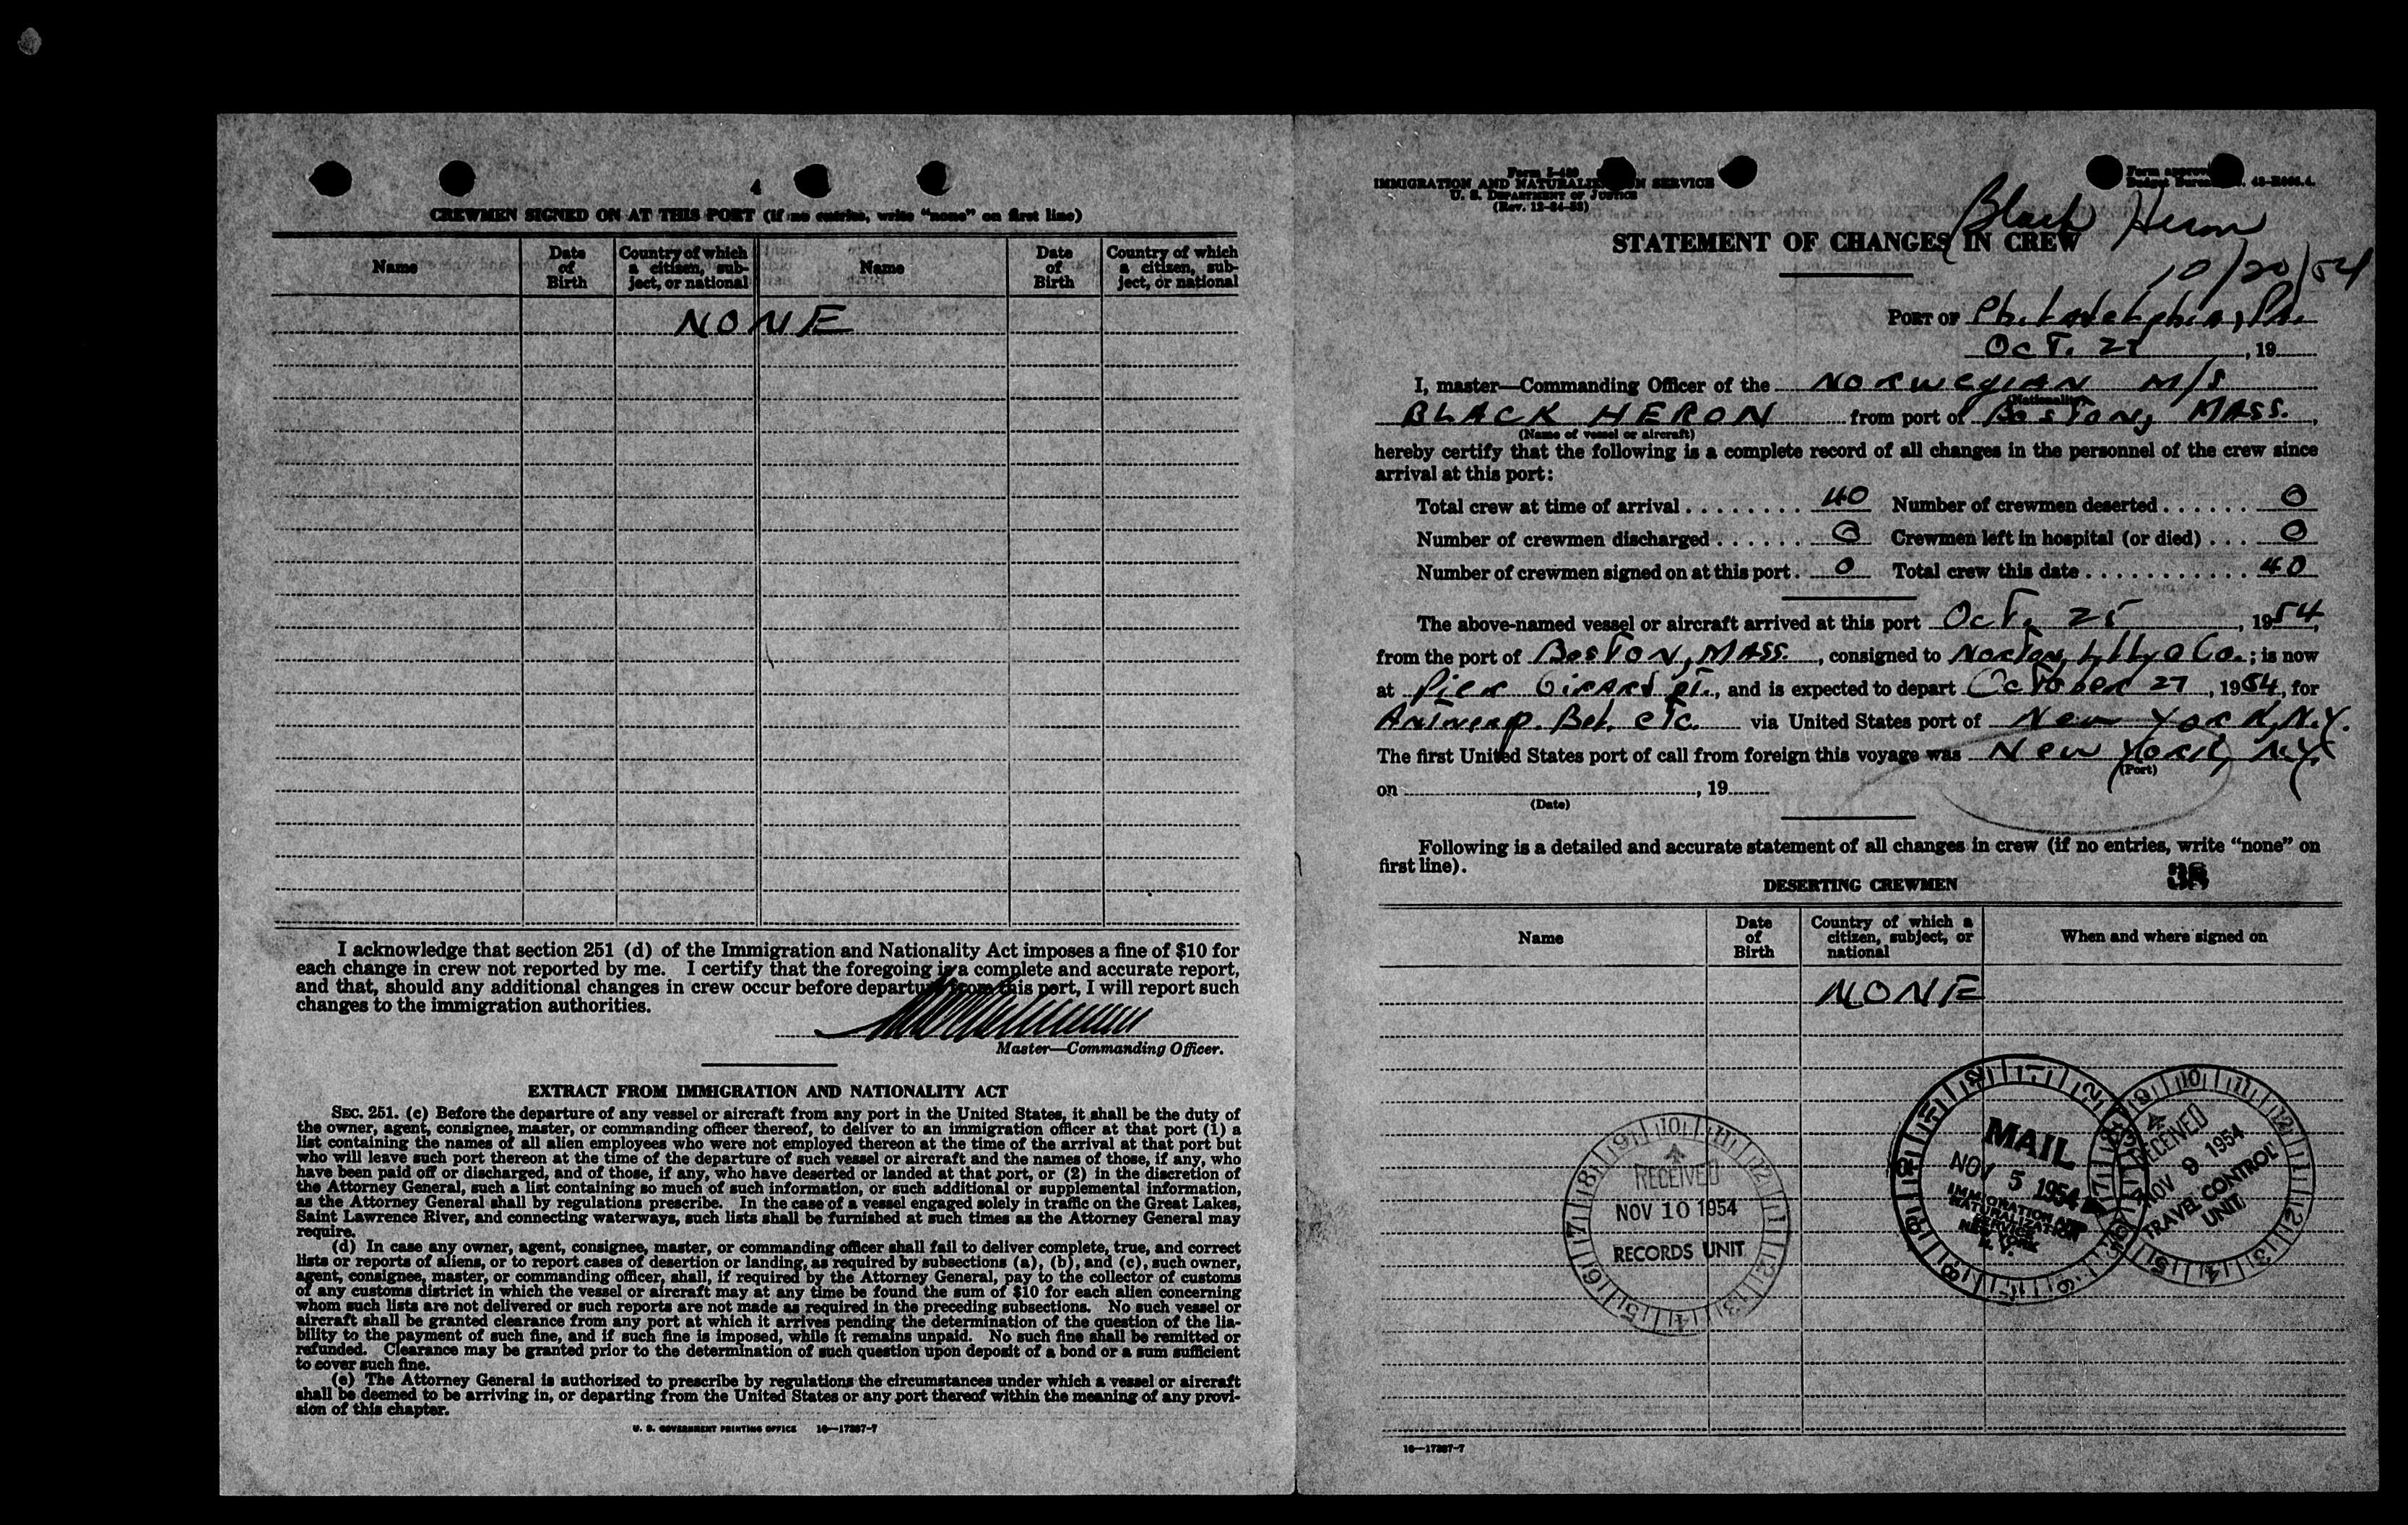 4
CREWMEN SIGNED ON AT THIS PORT (if no entries, write "none" on first line)
Name Date of Birth Country of which a citizen, subject, or national Name Date of Birth Country of which a citizen, subject, or national
NONE
I acknowledge that section 251 (d) of the Immigration and Nationality Act imposes a fine of $10 for
each change in crew not reported by me. I certify that the foregoing is a complete and accurate report,
and that, should any additional changes in crew occur before departure from this port, I will report such
changes to the immigration authorities.
Master—Commanding Officer.
EXTRACT FROM IMMIGRATION AND NATIONALITY ACT
SEC. 251. (c) Before the departure of any vessel or aircraft from any port in the United States, it shall be the duty of
the owner, agent, consignee, master, or commanding officer thereof, to deliver to an immigration officer at that port (1) a
list containing the names of all alien employees who were not employed thereon at the time of the arrival at that port but
who will leave such port thereon at the time of the departure of such vessel or aircraft and the names of those, if any, who
have been paid off or discharged, and of those, if any, who have deserted or landed at that port, or (2) in the discretion of
the Attorney General, such a list containing so much of such information, or such additional or supplemental information,
as the Attorney General shall by regulations prescribe. In the case of a vessel engaged solely in traffic on the Great Lakes,
Saint Lawrence River, and connecting waterways, such lists shall be furnished at such times as the Attorney General may
require.
(d) In case any owner, agent, consignee, master, or commanding officer shall fail to deliver complete, true, and correct
lists or reports of aliens, or to report cases of desertion or landing, as required by subsections (a), (b), and (c), such owner,
agent, consignee, master, or commanding officer, shall, if required by the Attorney General, pay to the collector of customs
of any customs district in which the vessel or aircraft may at any time be found the sum of $10 for each alien concerning
whom such lists are not delivered or such reports are not made as required in the preceding subsections. No such vessel or
aircraft shall be granted clearance from any port at which it arrives pending the determination of the question of the lia-
bility to the payment of such fine, and if such fine is imposed, while it remains unpaid. No such fine shall be remitted or
refunded. Clearance may be granted prior to the determination of such question upon deposit of a bond or a sum sufficient
to cover such fine.
(e) The Attorney General is authorized to prescribe by regulations the circumstances under which a vessel or aircraft
shall be deemed to be arriving in, or departing from the United States or any port thereof within the meaning of any provi-
sion of this chapter.
U. S. GOVERNMENT PRINTING OFFICE 16—17387-7
IMMIGRATION AND NATURALIZATION SERVICE
U. S. DEPARTMENT OF JUSTICE
Black Heron
STATEMENT OF CHANGES IN CREW
10/20/54
PORT OF Philadelphia, Pa.
OCT. 27, 19
I, master—Commanding Officer of the NORWEGIAN M/S
(Nationality)
BLACK HERON from port of BOSTON, MASS.,
(Name of vessel or aircraft)
hereby certify that the following is a complete record of all changes in the personnel of the crew since
arrival at this port:
Total crew at time of arrival 40 Number of crewmen deserted 0
Number of crewmen discharged 0 Crewmen left in hospital (or died) 0
Number of crewmen signed on at this port 0 Total crew this date 40
The above-named vessel or aircraft arrived at this port OCT. 25, 1954,
from the port of BOSTON, MASS., consigned to Norton, Lilly & Co.; is now
at Pier Girard Pt., and is expected to depart October 27, 1954, for
Antwerp. Bel. etc. via United States port of New York, N.Y.
The first United States port of call from foreign this voyage was New York, N.Y.
(Port)
on , 19
(Date)
Following is a detailed and accurate statement of all changes in crew (if no entries, write "none" on
first line).
38
DESERTING CREWMEN
Name Date of Birth Country of which a citizen, subject, or national When and where signed on
NONE
RECEIVED
NOV 10 1954
RECORDS UNIT
MAIL
NOV 5 1954
IMMIGRATION AND
NATURALIZATION
SERVICE
NEW YORK
N. Y.
RECEIVED
NOV 9 1954
TRAVEL CONTROL
UNIT
16—17387-7